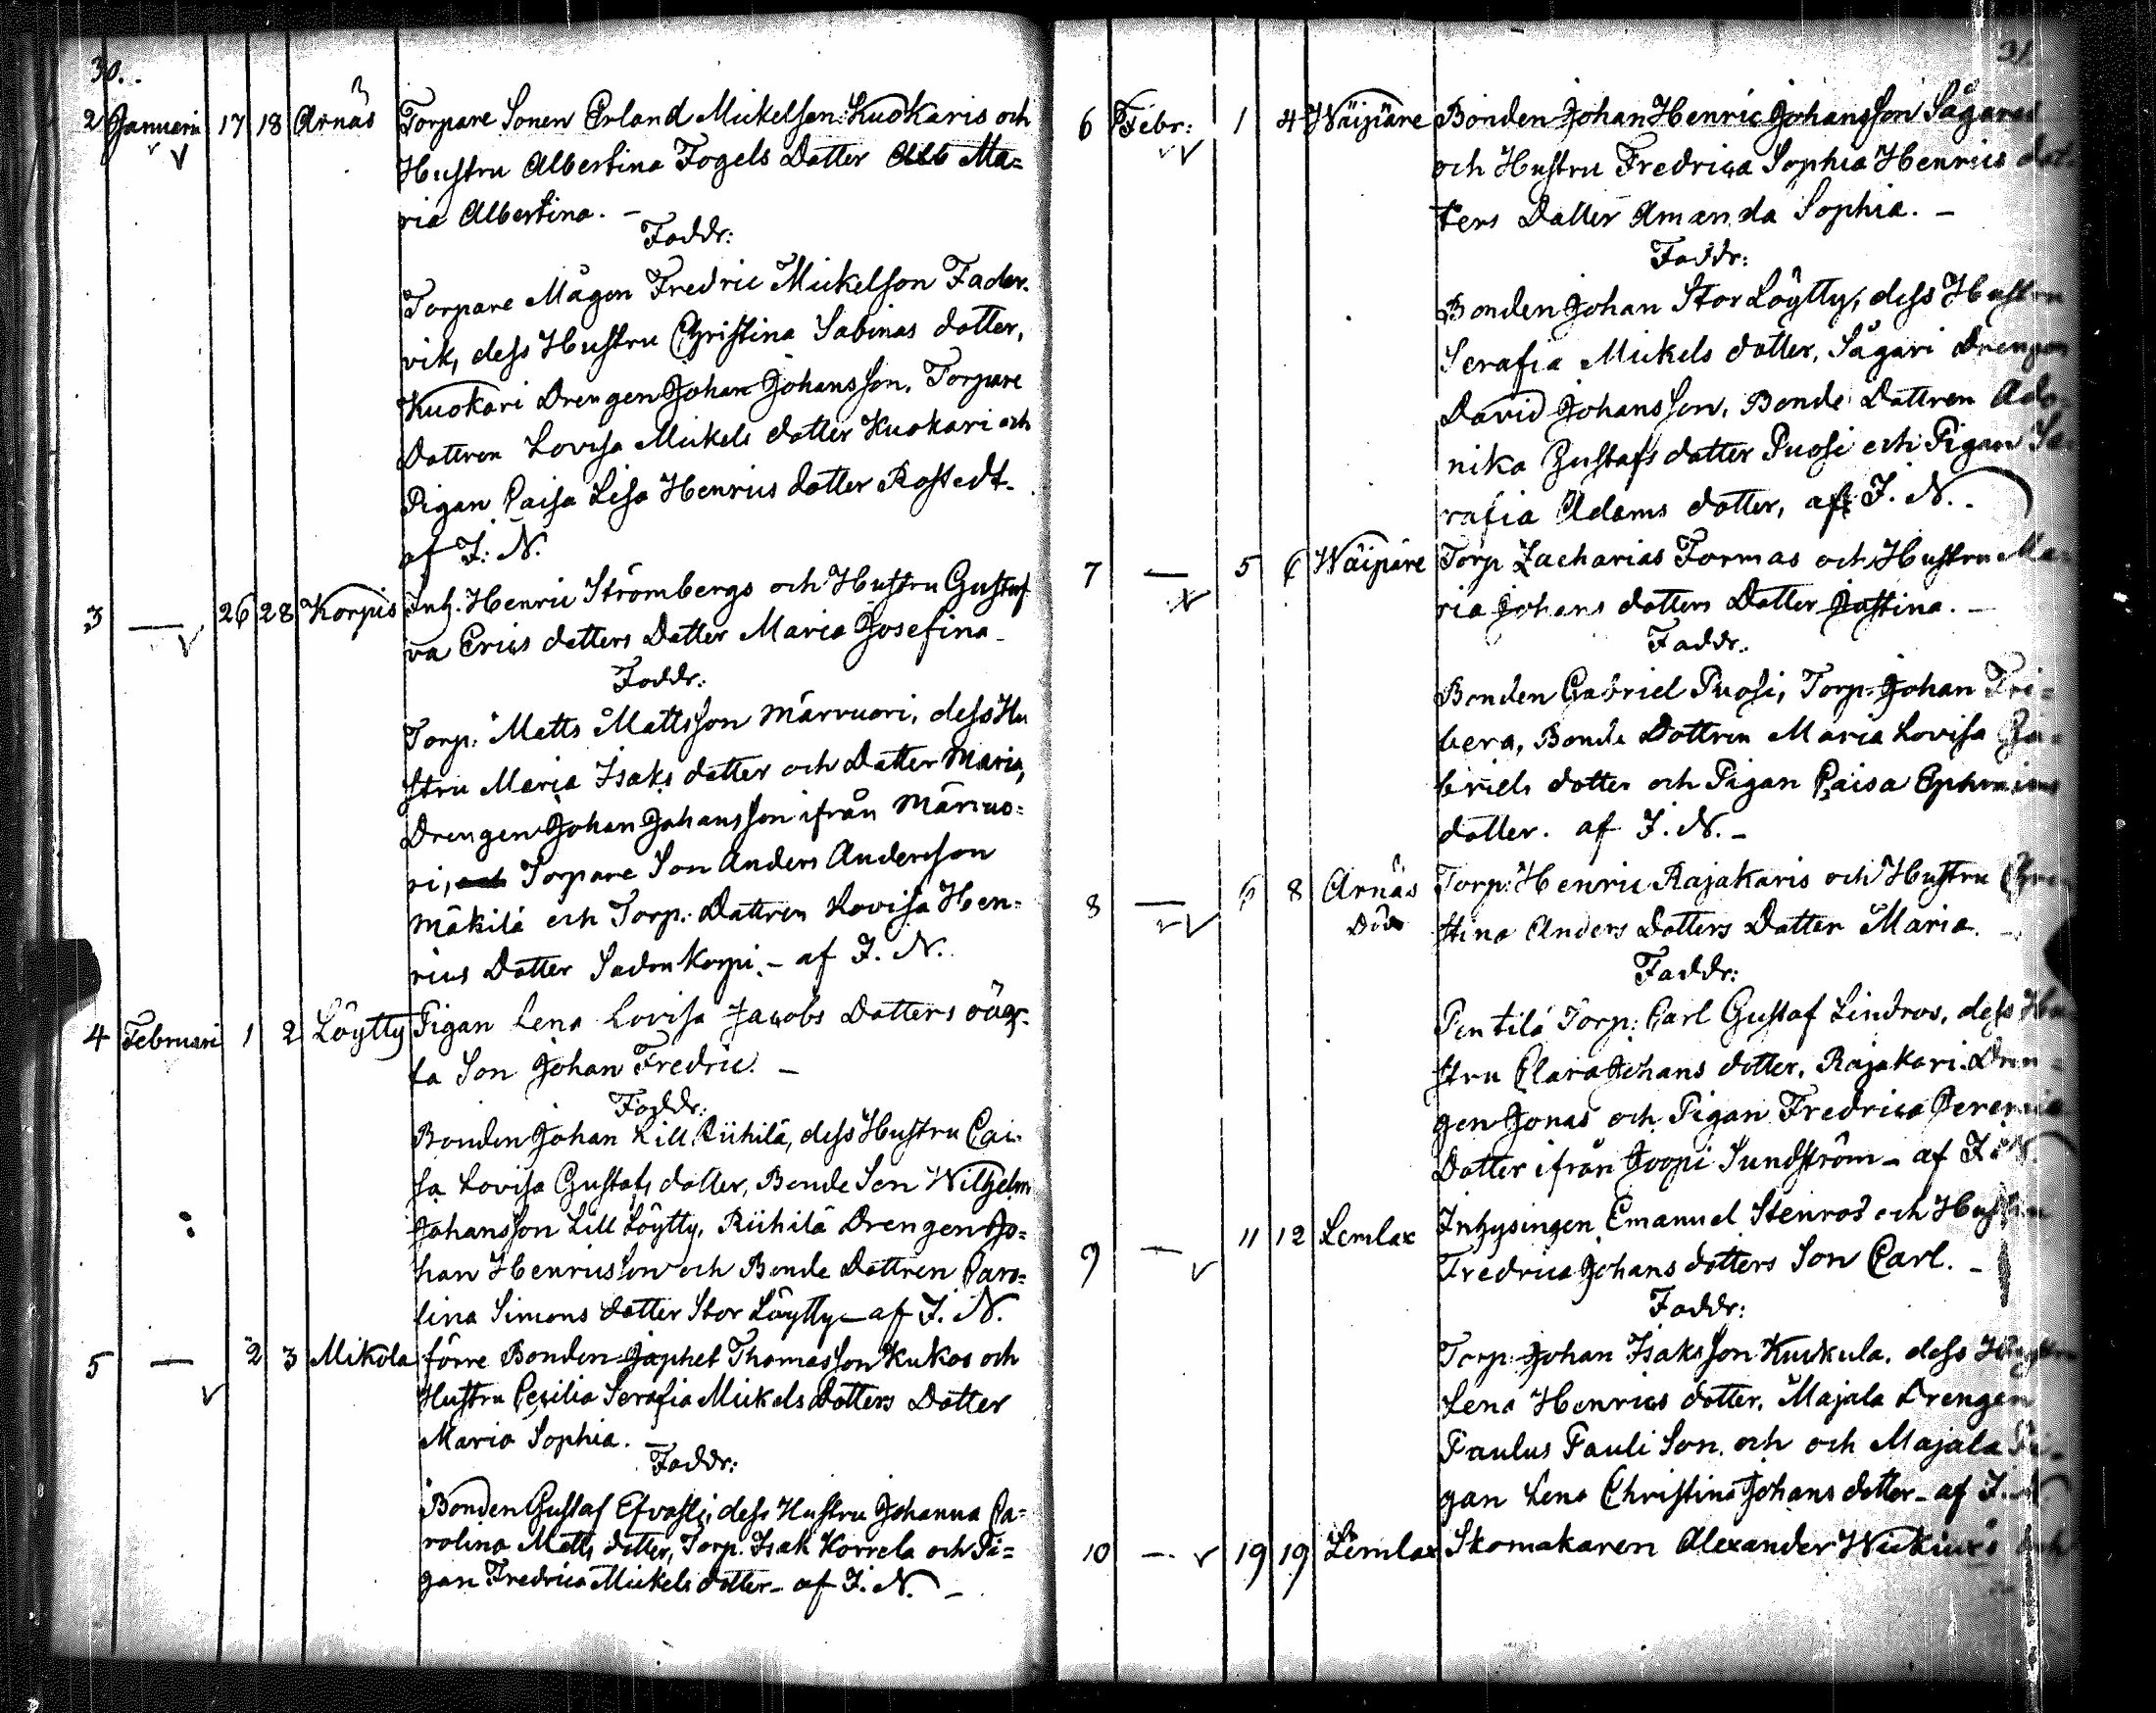 30.
2 Januarii 17 18 Arnäs Torpare Sonen Erland Mickelson Kuokaris och
Hustru Albertina Fogels Dotter Alb Ma=
ria Albertina. –
Faddr:
Torpare Mågen Fredric Mickelson Fader=
vik, dess Hustru Christina Sabinas dotter,
Kuokari Drengen Johan Johansson, Torpare
Dottren Lovisa Mickels dotter Kuokari och
Pigan Caisa Lisa Henrics dotter Rostedt.
af I. N.
3 — 26 28 Korpis Inh. Henric Strömbergs och Hustru Gustaf
va Erics dotters Dotter Maria Josefina –
Faddr:
Torp. Matts Mattsson Märvuori, dess Hu
stru Maria Isaks dotter och Dotter Maria,
Drengen Johan Johansson ifrån Märvuo=
ri, och Torpare Son Anders Andersson
Mäkilä och Torp. Dottren Lovisa Hen=
rics Dotter Sadonkorpi. – af I. N.
4 Februari 1 2 Löytty Pigan Lena Lovisa Jacobs Dotters oäg=
ta Son Johan Fredric. –
Faddr:
Bonden Johan Lill Riihilä, dess Hustru Cai=
sa Lovisa Gustafs dotter, Bonde Son Wilhelm
Johansson Lill Löytty, Riihilä Drengen Jo=
han Henricsson och Bonde Dottren Caro=
lina Simons dotter Stor Löytty – af I. N.
5 — 2 3 Mikola förre Bonden Japhet Thomasson Kukos och
Hustru Cecilia Serafia Mickels Dotters Dotter
Maria Sophia. –
Faddr:
Bonden Gustaf Efvasti, dess Hustru Johanna Ca=
rolina Matts dotter, Torp. Isak Korrela och Pi=
gan Fredrica Mickels dotter – af I. N. –
31
6 Febr: 1 4 Wäipäre Bonden Johan Henric Johansson Sågares
och Hustru Fredrica Sophia Henrics dot
ters Dotter Amanda Sophia. –
Faddr:
Bonden Johan Stor Löytty, dess Hustru
Serafia Mickels dotter, Sågari Drengen
David Johansson, Bonde Dottren Ado
nika Gustafs dotter Puosi och Pigan Se
rafia Adams dotter, af I. N. –
7 — 5 6 Wäipäre Torp Zacharias Formas och Hustru Ma
ria Johans dotters Dotter Justina. –
Faddr.
Bonden Gabriel Puosi, Torp. Johan Fri=
berg, Bonde Dottren Maria Lovisa Ga=
briels dotter och Pigan Caisa Ephraims
dotter. af I. N. –
8 — 6 8 Arnäs Torp. Henric Rajakaris och Hustru Chri
Död stina Anders Dotters Dotter Maria. –
Faddr:
Pentilä Torp: Carl Gustaf Lindros, dess Hu
stru Clara Johans dotter, Rajakari Dren=
gen Jonas och Pigan Fredrica Jeremia
Dotter ifrån Joopi Sundström – af I. N.
9 — 11 12 Lemlax Inhysingen Emanuel Stenros och Hustru
Fredrica Johans dotters Son Carl. –
Faddr:
Torp. Johan Isaksson Kuikula, dess Hustru
Lena Henrics dotter, Majala Drengen
Paulus Pauli Son och och Majala Pi=
gan Lena Christina Johans dotter – af I. N
10 — 19 19 Lemlax Skomakaren Alexander